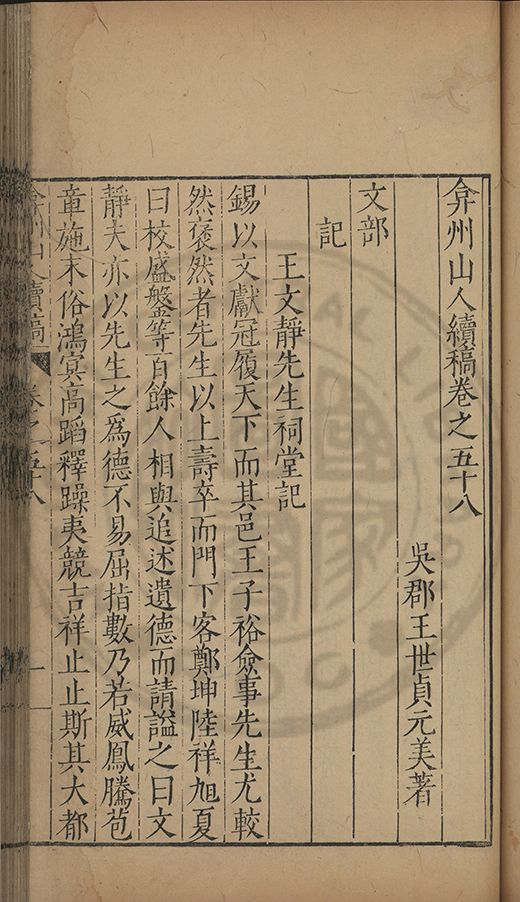 弇州山人續稿卷之五十八
吳郡王世貞元美著
文部
記
王文靜先生祠堂記
錫以文獻冠履天下而其邑王子裕僉事先生尤較
然褒然者先生以上壽卒而門下客鄭坤陸祥旭夏
曰校盛盤等百餘人相與追述遺德而請謚之曰文
靜夫亦以先生之爲德不易屈指數乃若威鳳騰苞
章施末俗鴻冥高蹈釋躁夷競吉祥止止斯其大都
弇州山人續稿 卷之五十八 一